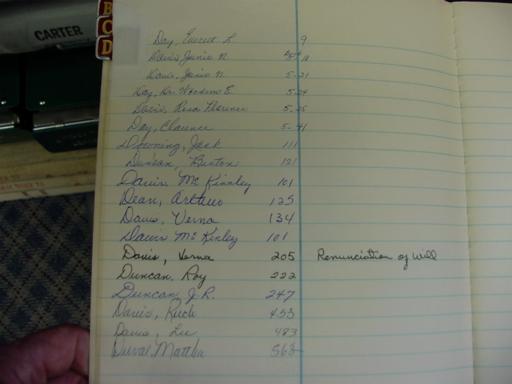 CARTER
B
C
D
Day, L 9
Davis, Janie N.
Davis, Janie N. 5-21
Day, Dr. E. 5-24
Davis, Rosa Florence 5-25
Day, Clarence 5-41
Downing, Jack 111
Duncan, Burton 121
Davis McKinley 101
Dean, Arthur 125
Davis, Verna 134
Davis McKinley 101
Davis, Verna 205 Renunciation of Will
Duncan, Roy 222
Duncan, J.R. 247
Davis, Ruth 453
Davis, Lee 483
Duval, Martha 563